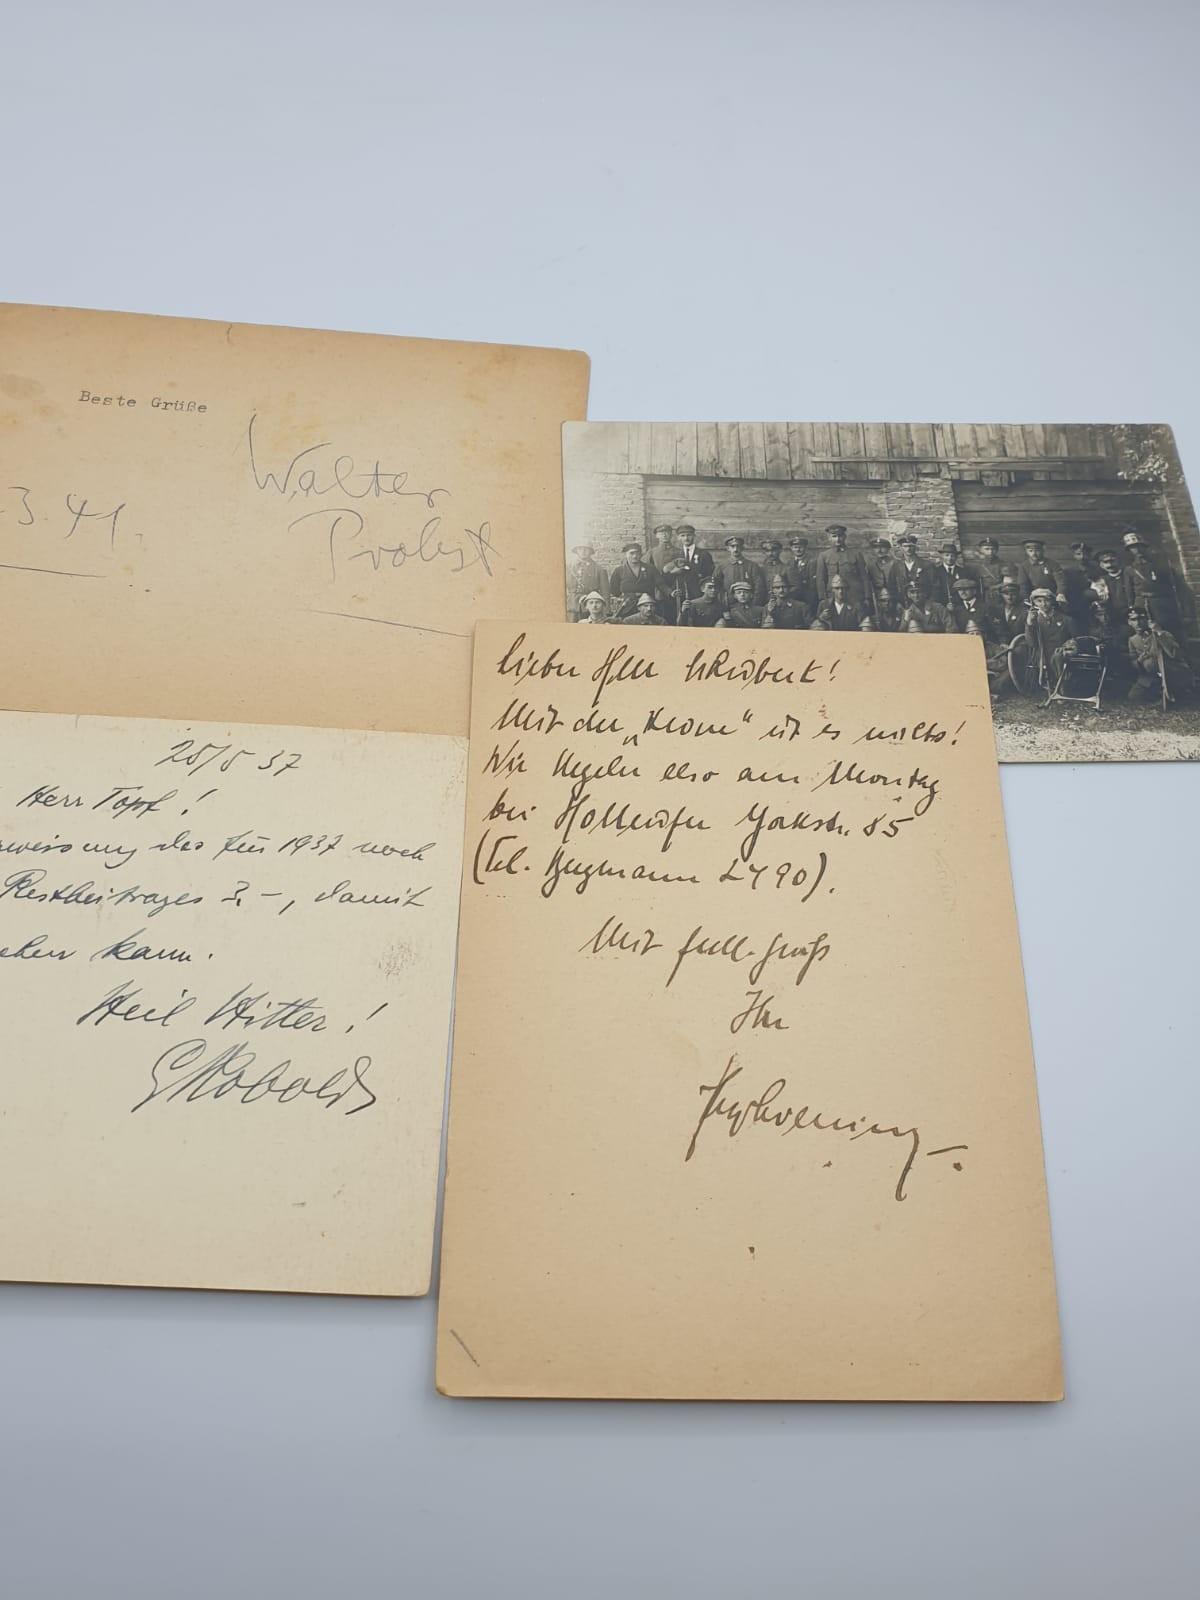 Beste Grüße
3. 41.
Walter
Probst
25/5 37
Herr Topf!
das für 1937 noch
Restbeitrages 3.-, damit
kann.
Heil Hitler!
Lieber Herr
Mit der „Krone" ist es nichts!
Wir kegeln also am Montag
bei Yorkstr. 85
(Tel. 2490).
Mit Gruß
Ihr